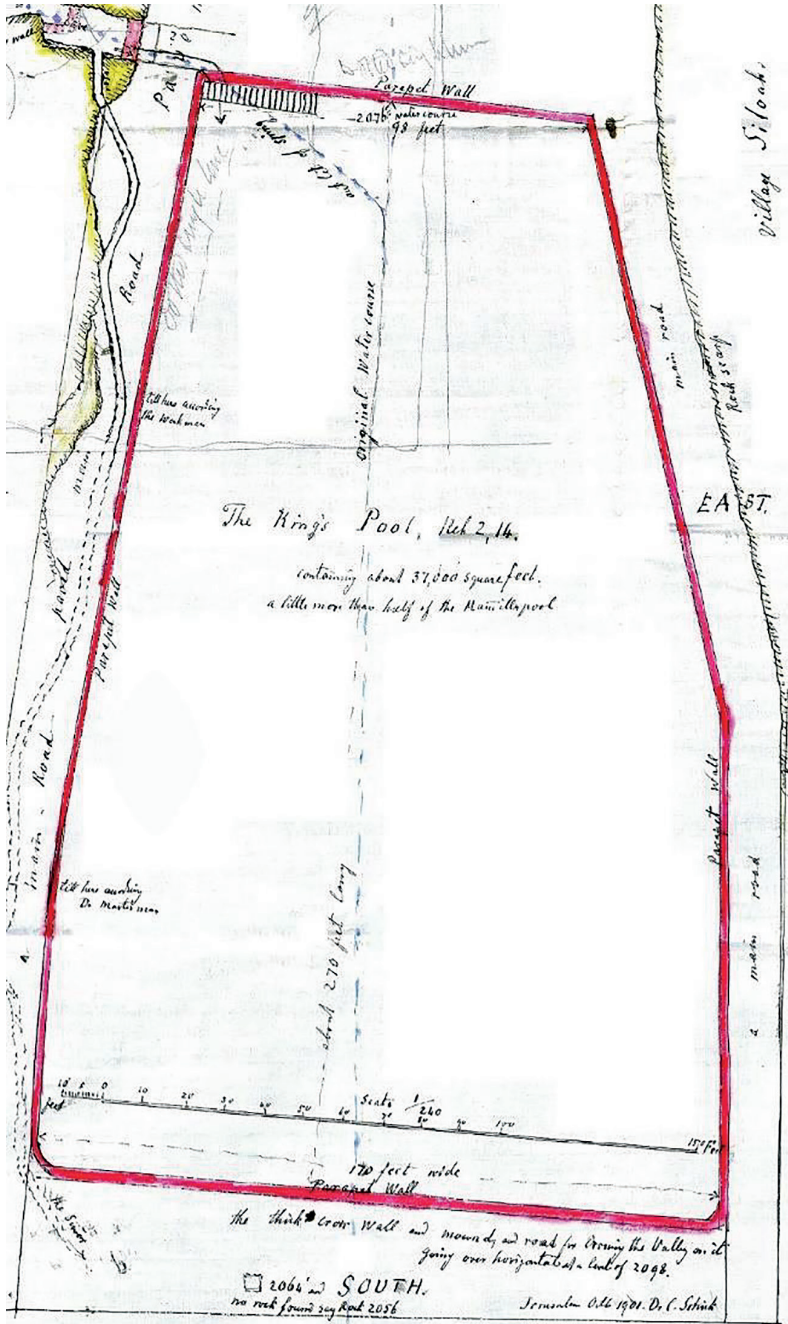 wall
Parapet Wall
2070 water course
98 feet
Village Siloah.
Road
main road
Rock scarp
original Water course
till here according
the Workmen
main
Road
Parapet Wall
EAST.
The King's Pool, Neh 2,14.
containing about 37,000 square feet.
a little more than half of the Mamilla pool
main Road
Parapet Wall
till here according
a main road
about 270 feet long
10 5 0 10 20 30 40 50 60 70 80 90 100 150 Feet
feet
Scale 1/240
170 feet wide
Parapet Wall
the thick cross wall and mound, and road for crossing the Valley on it
going over horizontal at a level of 2098.
2064 SOUTH.
no rock found say Rock 2056
Jerusalem Octb 1901. Dr. C. Schick